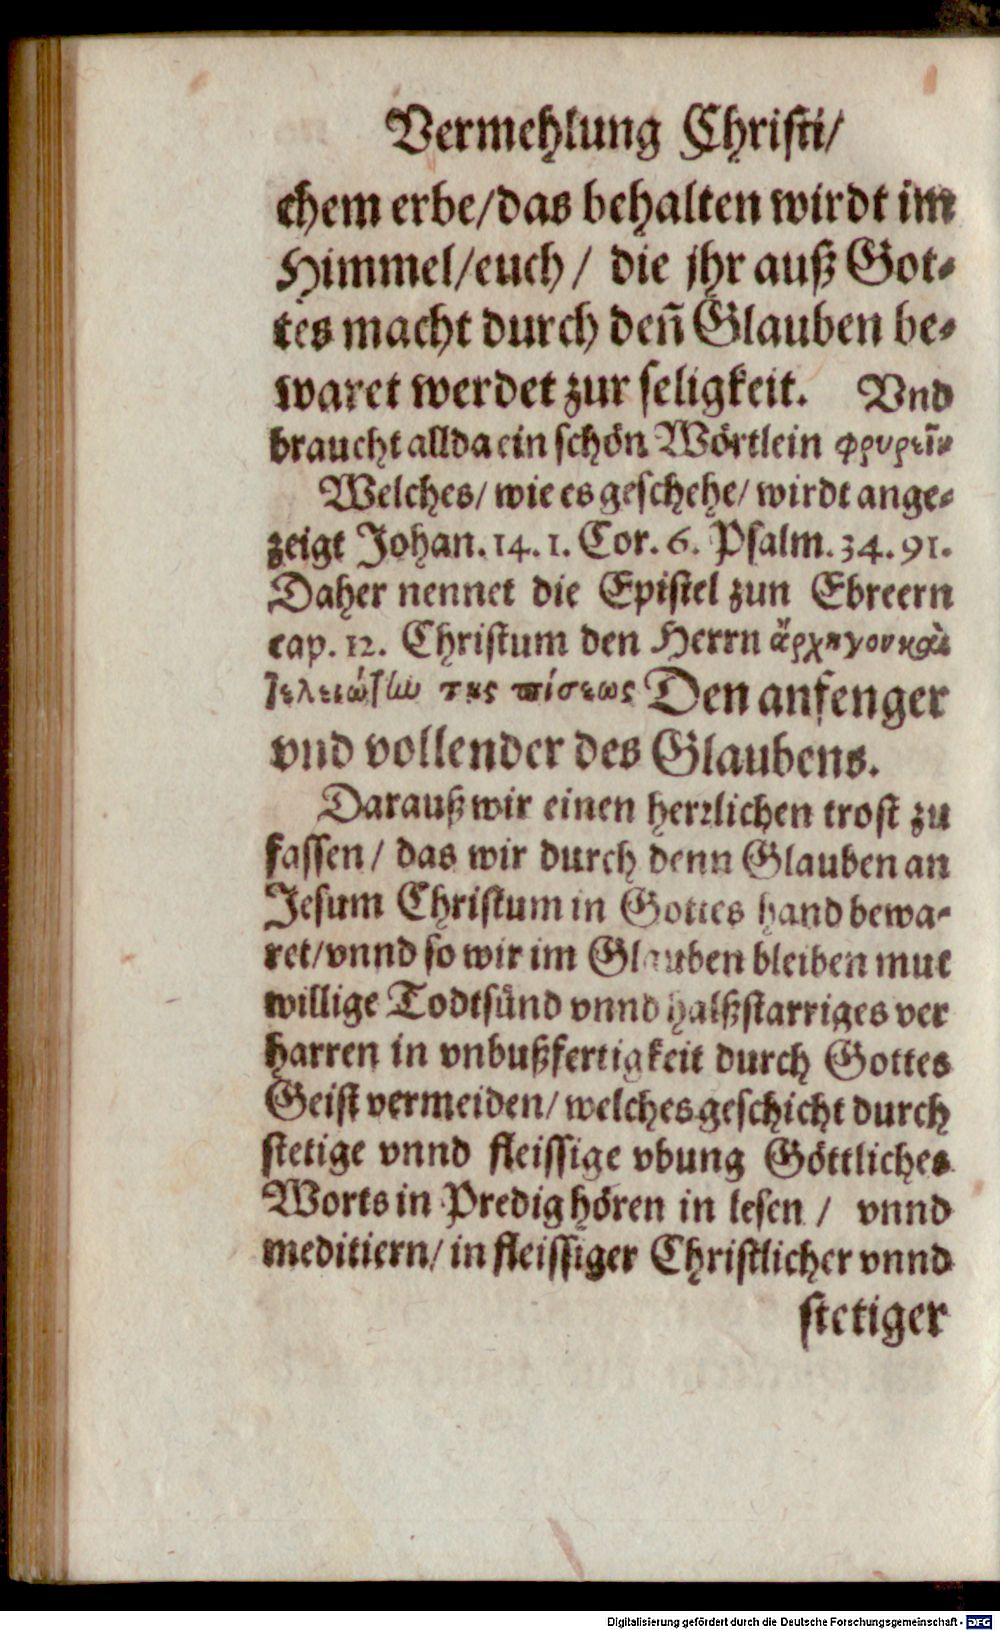 Vermehlung Christi/
chem erbe/das behalten wirdt im
Himmel/euch/ die jhr auß Got⸗
tes macht durch deñ Glauben be⸗
waret werdet zur seligkeit. Vnd
braucht allda ein schön Wörtlein φρυρεῖν
Welches/ wie es geschehe/ wirdt ange⸗
zeigt Johan. 14. 1. Cor. 6. Psalm. 34. 91.
Daher nennet die Epistel zun Ebreern
cap. 12. Christum den Herrn ἄρχηγον καὶ
τελειώτην της πίσεως Den anfenger
vnd vollender des Glaubens.
Darauß wir einen herrlichen trost zu
fassen/ das wir durch denn Glauben an
Jesum Christum in Gottes hand bewa⸗
ret/vnnd so wir im Glauben bleiben mut
willige Todtsünd vnnd halßstarriges ver
harren in vnbußfertigkeit durch Gottes
Geist vermeiden/ welches geschicht durch
stetige vnnd fleissige vbung Göttliches
Worts in Predig hören in lesen / vnnd
meditiern/ in fleissiger Christlicher vnnd
stetiger
Digitalisierung gefördert durch die Deutsche Forschungsgemeinschaft - DFG